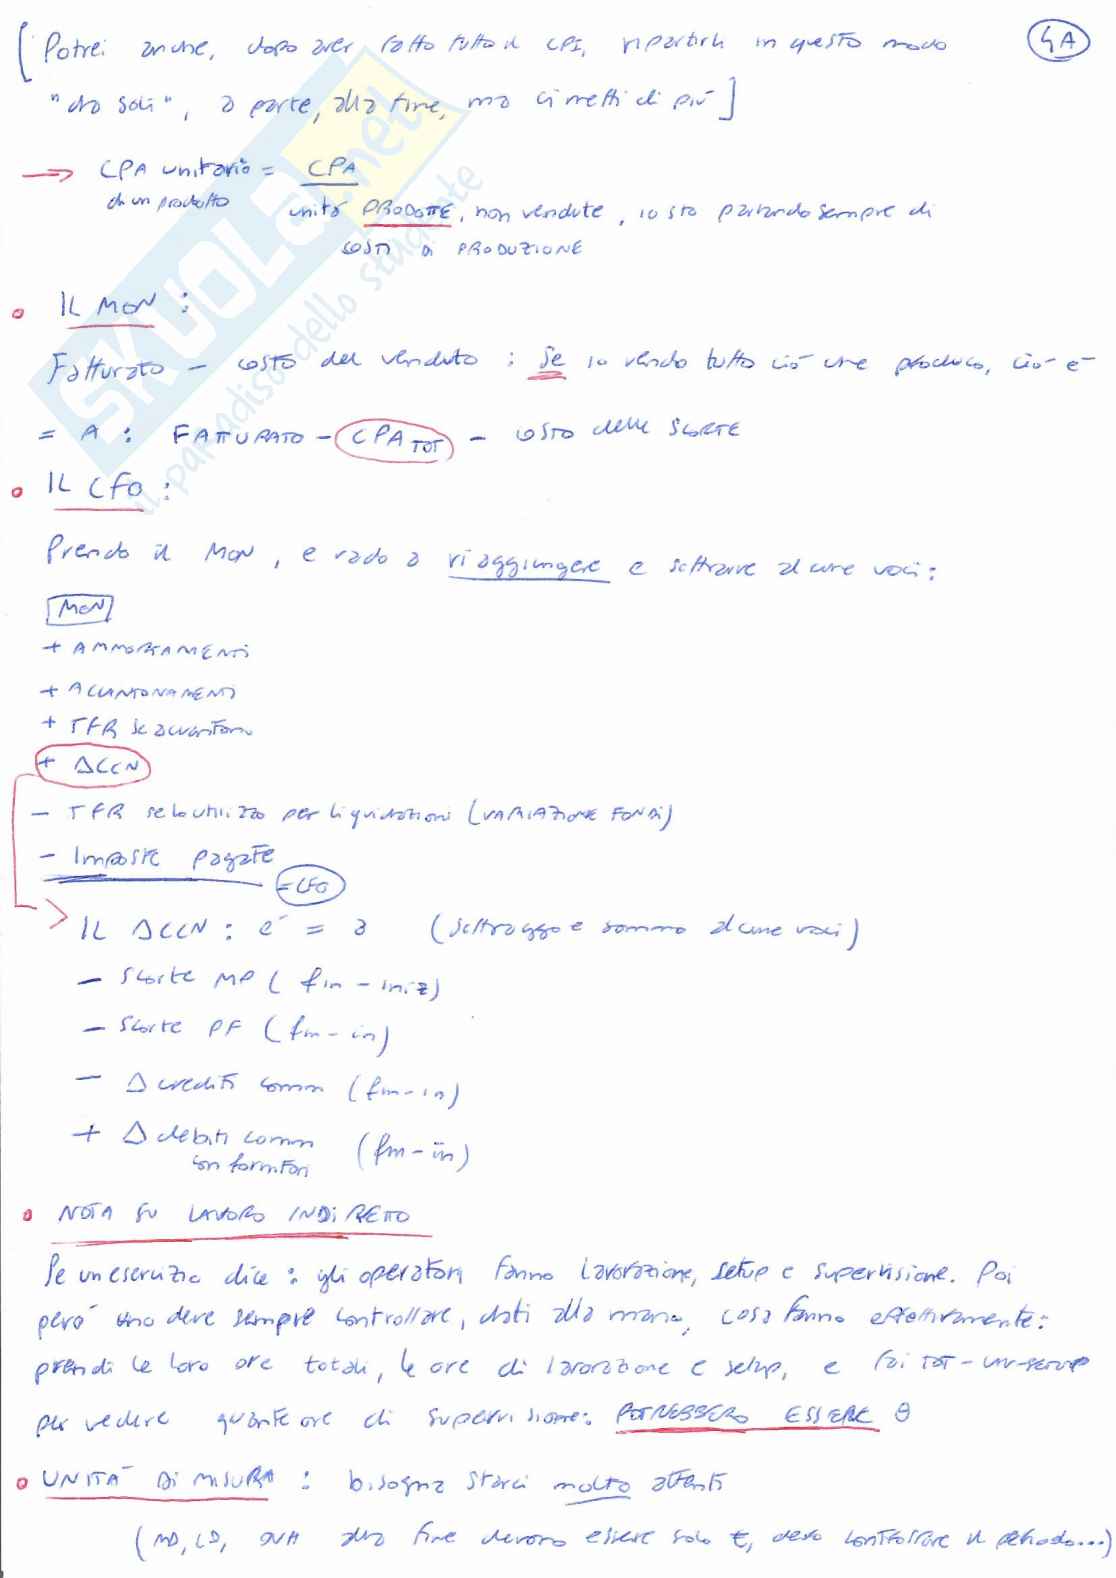 [Potrei anche, dopo aver fatto tutto il CPI, ripartirli in questo modo
4A
"da soli", a parte, alla fine, ma ci metti di più]
→ CPA unitario = CPA
di un prodotto unità PRODOTTE, non vendute, io sto parlando sempre di
costi di PRODUZIONE
• IL MON :
Fatturato - costo del venduto : se io vendo tutto ciò che produco, ciò è
= A : FATTURATO - CPA TOT - costo delle SCORTE
• IL CFO :
Prendo il MON, e vado a riaggiungere e sottrarre alcune voci :
MON
+ AMMORTAMENTI
+ ACCANTONAMENTI
+ TFR se accantono
+ ΔCCN
- TFR se lo utilizzo per liquidazioni (VARIAZIONE FONDI)
- Imposte pagate
= CFO
IL ΔCCN : è = a (sottraggo e sommo alcune voci)
- scorte MP (fin - iniz)
- scorte PF (fin - in)
- Δ crediti comm (fin - in)
+ Δ debiti comm (fin - in)
con fornitori
• NOTA SU LAVORO INDIRETTO
Se un esercizio dice : gli operatori fanno lavorazione, setup e supervisione. Poi
però uno deve sempre controllare, dati alla mano, cosa fanno effettivamente :
prendi le loro ore totali, le ore di lavorazione e setup, e fai TOT - LAV - SETUP
per vedere quante ore di supervisione : POTREBBERO ESSERE 0
• UNITÀ DI MISURA : bisogna starci molto attenti
(MD, LD, OVH alla fine devono essere solo €, devo controllare il periodo...)
SKUOLA.net
il paradiso dello studente